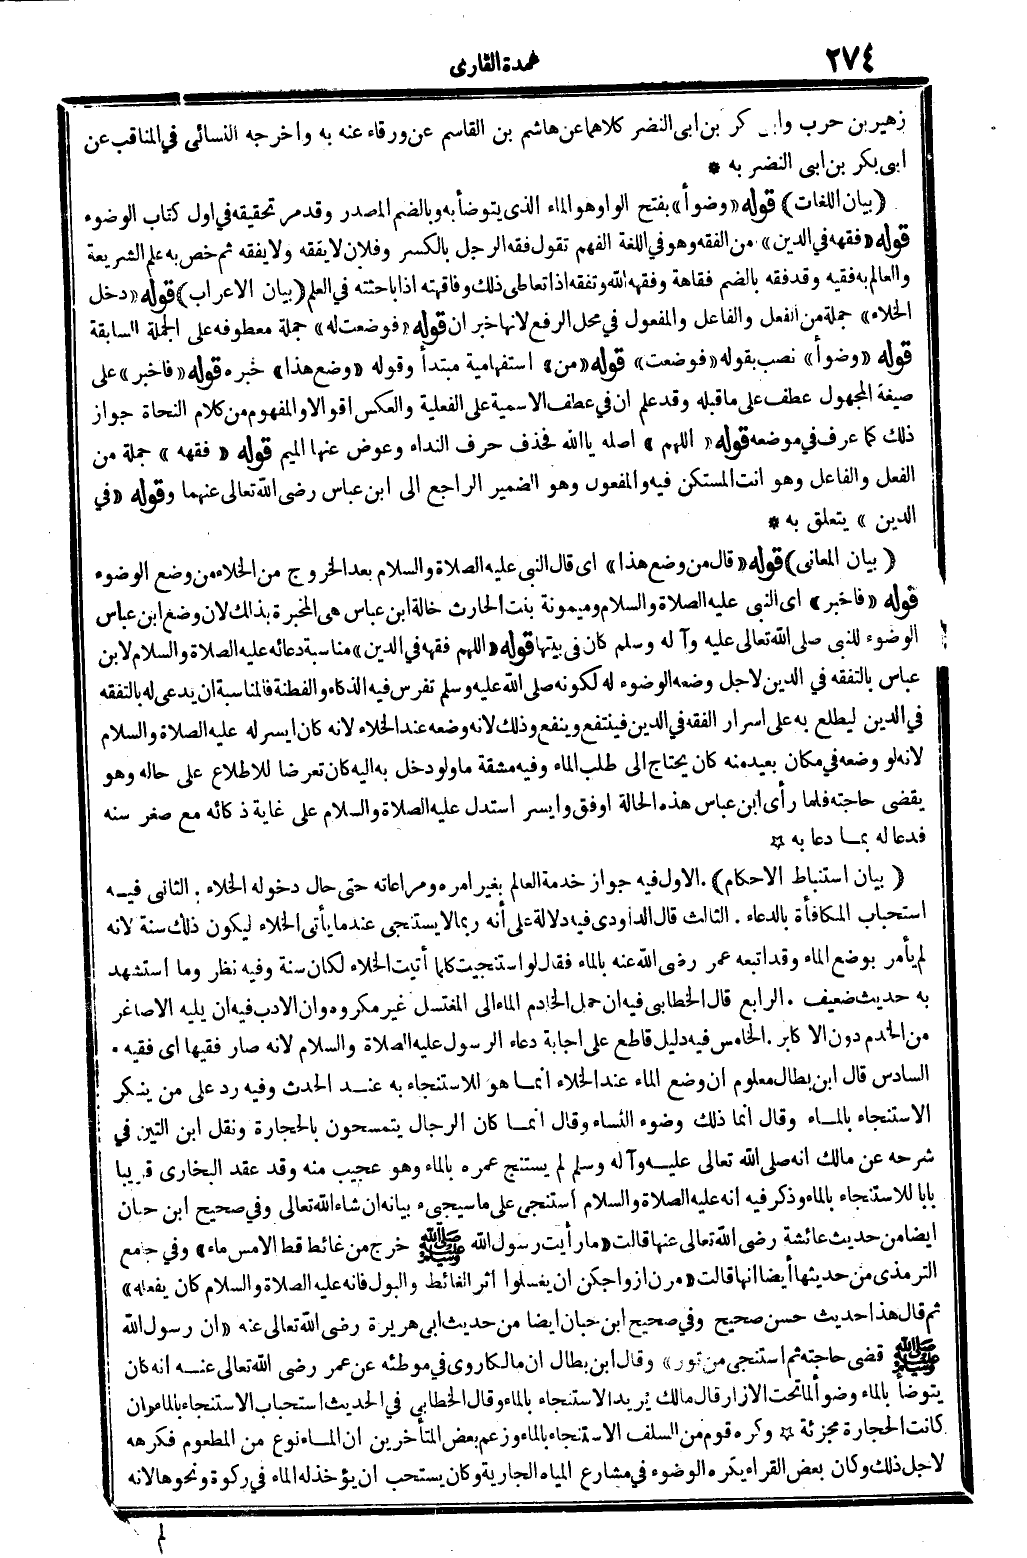 ٢٧٤
عمدة القارى
زهير بن حرب وابى كر بن ابى النضر كلاهما عن هاشم بن القاسم عن ورقاء عنه به واخرجه النسائى في المناقب عن
ابى بكر بن ابى النضر به *
(بيان اللغات) قوله «وضوأ» بفتح الواو هو الماء الذى يتوضأ به وبالضم المصدر وقد مر تحقيقه في اول كتاب الوضوء
قوله «فقهه في الدين» من الفقه وهو في اللغة الفهم تقول فقه الرجل بالكسر وفلان لا يفقه ولا يفقه ثم خص به علم الشريعة
والعالم به فقيه وقد فقه بالضم فقاهة وفقهه الله وتفقه اذا تعاطى ذلك وفاقهته اذا باحثته في العلم (بيان الاعراب) قوله «دخل
الخلاء» جملة من الفعل والفاعل والمفعول في محل الرفع لانها خبر ان قوله «فوضعت له» جملة معطوفه على الجملة السابقة
قوله «وضوأ» نصب بقوله «فوضعت» قوله «من» استفهامية مبتدأ وقوله «وضع هذا» خبره قوله «فاخبر» على
صيغة المجهول عطف على ما قبله وقد علم ان في عطف الاسمية على الفعلية والعكس اقوالا والمفهوم من كلام النحاة جواز
ذلك كما عرف في موضعه قوله «اللهم» اصله يا الله فحذف حرف النداء وعوض عنها الميم قوله «فقهه» جملة من
الفعل والفاعل وهو انت المستكن فيه والمفعول وهو الضمير الراجع الى ابن عباس رضى الله تعالى عنهما وقوله «في
الدين» يتعلق به *
(بيان المعانى) قوله «قال من وضع هذا» اى قال النبى عليه الصلاة والسلام بعد الخروج من الخلاء من وضع الوضوء
قوله «فاخبر» اى النبى عليه الصلاة والسلام وميمونة بنت الحارث خالة ابن عباس هى المخبرة بذالك لان وضع ابن عباس
الوضوء للنبى صلى الله تعالى عليه وآله وسلم كان في بيتها قوله «اللهم فقهه في الدين» مناسبة دعائه عليه الصلاة والسلام لابن
عباس بالتفقه في الدين لاجل وضعه الوضوء له لكونه صلى الله عليه وسلم تفرس فيه الذكاء والفطنة فالمناسبة ان يدعى له بالتفقه
في الدين ليطلع به على اسرار الفقه في الدين فينتفع وينفع وذلك لانه وضعه عند الخلاء لانه كان ايسر له عليه الصلاة والسلام
لانه لو وضعه في مكان بعيد منه كان يحتاج الى طلب الماء وفيه مشقة ما ولو دخل به اليه كان تعرضا للاطلاع على حاله وهو
يقضى حاجته فلما رأى ابن عباس هذه الحالة اوفق وايسر استدل عليه الصلاة والسلام على غاية ذكائه مع صغر سنه
فدعا له بما دعا به ☆
(بيان استنباط الاحكام). الاول فيه جواز خدمة العالم بغير امره ومراعاته حتى حال دخوله الخلاء. الثانى فيه
استحباب المكافأة بالدعاء. الثالث قال الداودى فيه دلالة على أنه ربما لا يستنجى عند ما يأتى الخلاء ليكون ذلك سنة لانه
لم يأمر بوضع الماء وقد اتبعه عمر رضى الله عنه بالماء فقال لو استنجيت كلما أتيت الخلاء لكان سنة وفيه نظر وما استشهد
به حديث ضعيف. الرابع قال الخطابى فيه ان حمل الخادم الماء الى المغتسل غير مكروه وان الادب فيه ان يليه الاصاغر
من الخدم دون الاكابر. الخامس فيه دليل قاطع على اجابة دعاء الرسول عليه الصلاة والسلام لانه صار فقيها اى فقيه.
السادس قال ابن بطال معلوم ان وضع الماء عند الخلاء انما هو للاستنجاء به عند الحدث وفيه رد على من ينكر
الاستنجاء بالماء وقال انما ذلك وضوء النساء وقال انما كان الرجال يتمسحون بالحجارة ونقل ابن التين في
شرحه عن مالك انه صلى الله تعالى عليه وآله وسلم لم يستنج عمره بالماء وهو عجيب منه وقد عقد البخارى قريبا
بابا للاستنجاء بالماء وذكر فيه انه عليه الصلاة والسلام استنجى على ما سيجىء بيانه ان شاء الله تعالى وفي صحيح ابن حبان
ايضا من حديث عائشة رضى الله تعالى عنها قالت «ما رأيت رسول الله ﷺ خرج من غائط قط الا مس ماء» وفي جامع
الترمذى من حديثها أيضا انها قالت «مرن ازواجكن ان يغسلوا اثر الغائط والبول فانه عليه الصلاة والسلام كان يفعله»
ثم قال هذا حديث حسن صحيح وفي صحيح ابن حبان ايضا من حديث ابى هريرة رضى الله تعالى عنه «ان رسول الله
ﷺ قضى حاجته ثم استنجى من تور» وقال ابن بطال ان مالكا روى في موطئه عن عمر رضى الله تعالى عنه انه كان
يتوضأ بالماء وضوأ لما تحت الازار قال مالك يريد الاستنجاء بالماء وقال الخطابى في الحديث استحباب الاستنجاء بالماء وان
كانت الحجارة مجزئة ☆ وكره قوم من السلف الاستنجاء بالماء وزعم بعض المتأخرين ان الماء نوع من المطعوم فكرهه
لاجل ذلك وكان بعض القراء يكره الوضوء في مشارع المياه الجارية وكان يستحب ان يؤخذ له الماء في ركوة ونحوها لانه
لم